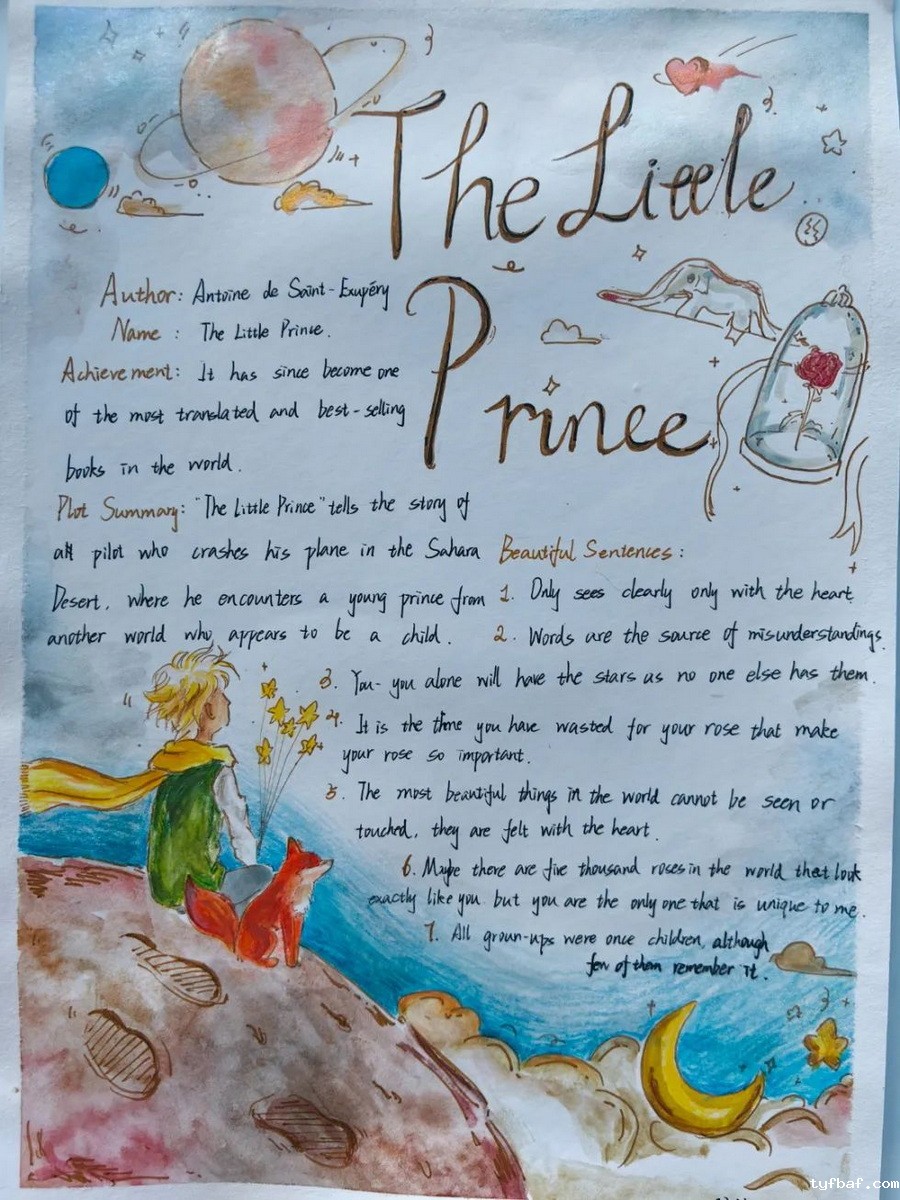 The Little
Prince
Author: Antoine de Saint-Exupéry
Name : The Little Prince.
Achievement: It has since become one
of the most translated and best-selling
books in the world.
Plot Summary: "The Little Prince" tells the story of
a pilot who crashes his plane in the Sahara
Desert, where he encounters a young prince from
another world who appears to be a child.
Beautiful Sentences:
1. Only sees clearly only with the heart.
2. Words are the source of misunderstandings.
3. You- you alone will have the stars as no one else has them.
4. It is the time you have wasted for your rose that make
your rose so important.
5. The most beautiful things in the world cannot be seen or
touched, they are felt with the heart.
6. Maybe there are five thousand roses in the world that look
exactly like you but you are the only one that is unique to me.
7. All grown-ups were once children, although
few of them remember it.
tyfbaf.com